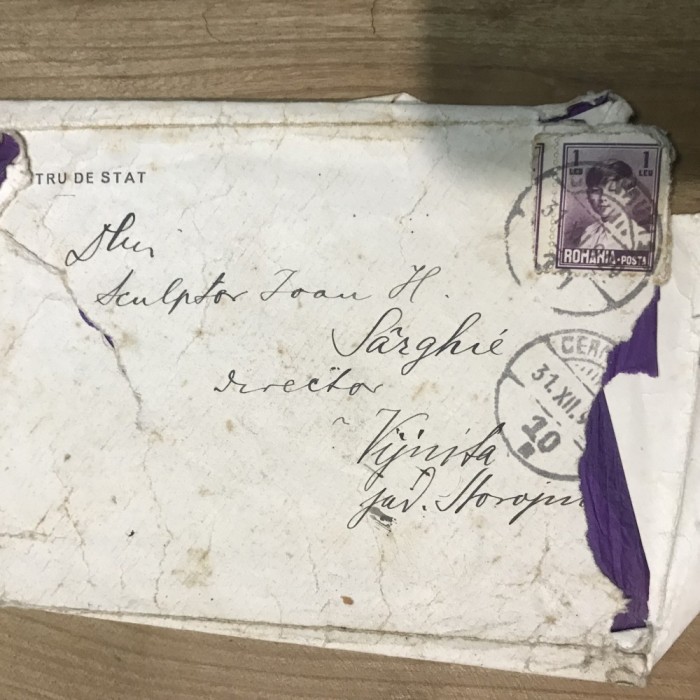 TRU DE STAT
1 LEU 1 LEU
ROMANIA-POSTA
Dlui
Sculptor Ioan H.
Sârghie
director
Vijnita
jud. Storojin
CERN
31.XII.9
10